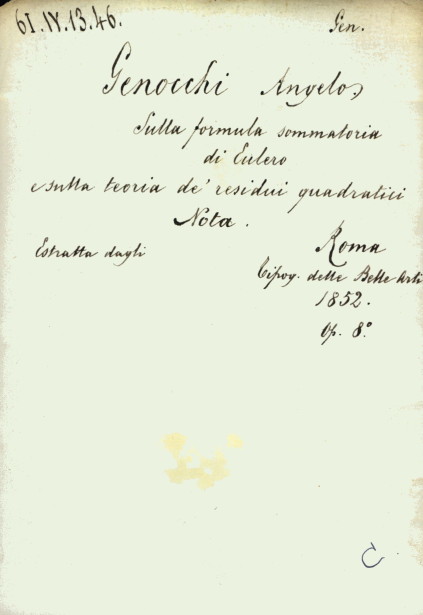 61.IV.13.46.
Gen.
Genocchi Angelo
Sulla formula sommatoria
di Eulero
e sulla teoria de' residui quadratici
Nota.
Estratta dagli
Roma
Tipog. delle Belle Arti
1852.
Op. 8°
C